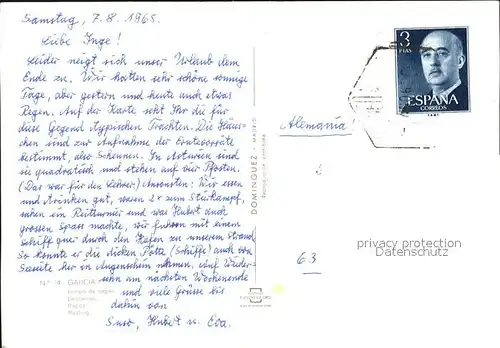 Samstag, 7.8.1965.
Liebe Inge!
Leider neigt sich unser Urlaub dem
Ende zu. Wir hatten sehr schöne sonnige
Tage, aber gestern und heute auch etwas
Regen. Auf der Karte seht Ihr die für
diese Gegend typischen Trachten. Die Häus-
chen sind zur Aufnahme der Erntevorräte
bestimmt, also Scheunen. In Asturien sind
sie quadratisch und stehen auf vier Pfosten.
(Das war für den Lehrer) Ansonsten: Wir essen
und trinken gut, waren 2x zum Stierkampf,
sahen ein Reitturnier und was Hubert auch
grossen Spass machte, wir fuhren mit einem
Schiff quer durch den Hafen zu unserem Strand
So konnte er die dicken Pötte (Schiffe) auch von
Seeseite her in Augenschein nehmen. Auf Wieder-
sehn am nächsten Wochenende
und viele Grüsse bis
dahin von
Suse, Hubert u. Eva.
N.º 14 GALICIA
DOMINGUEZ - MADRID
3
PTAS
ESPAÑA
CORREOS
Alemania
63
privacy protection
Datenschutz